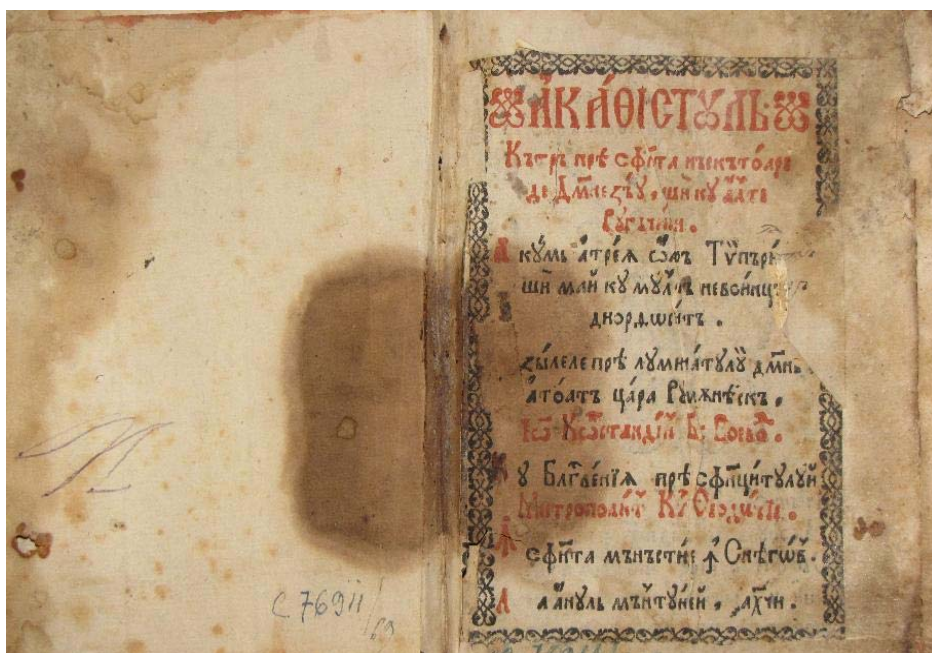 АКАѲІСТꙊЛЬ
Кътръ прѣ сф҃нта нъскътоаре
де Дм҃незъу, ши ку алте
Ругъчюни.
Акумь атрея ѡаръ Тѵпъри
ши май ку мултъ невоинцъ
дизрдѡит.
Зылеле прѣ луминатулуй дм҃нь
атоатъ цара Румѫнѣскъ.
Іѡ Кѡ́стандін Б: Воевод.
Ку Блг҃венія прѣ сф҃нцитулуй
Митрополит Кѵ Ѳеодосіе.
сф҃нта мънъстире ꙟ Снѣгѡв.
Ла ануль мънтуирей, ҂ахчи.
С 76911/69